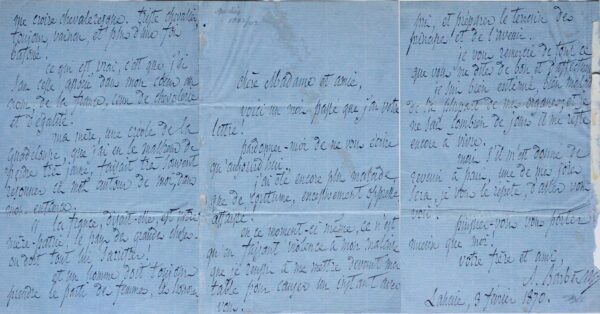 me croire chevaleresque. triste chevalier,
toujours vaincu et plus d'une fois
bafoué!
ce qui est vrai, c'est que j'ai
bien gardé dans mon cœur un
nom de la france, ceux de chevalerie
et d'égalité!
ma mère, une créole de la
guadeloupe, que j'ai eu le malheur de
perdre très jeune, faisait très souvent
résonner ce mot autour de moi, dans
mon enfance.
" la france, disait-elle, est notre
mère-patrie, le pays des grandes choses
où doit tout lui sacrifier.
et un homme doit toujours
prendre le parti des femmes, les honorer
chère Madame et amie,
voici un mois passé que j'ai votre
lettre!
pardonnez-moi de ne vous écrire
qu'aujourd'hui.
j'ai été encore plus malade,
que de coutume, excessivement
affaire.
en ce moment-ci même, ce n'est
qu'en faisant violence à mon malaise
que je réussis à me mettre devant ma
table pour causer un instant avec
vous.
et préparer le terrain des
principes et de l'avenir.
je vous remercie de tout ce
que vous me dites de bon et d'affectueux
je suis bien enterré, bien
de la plupart de mes organes, et
ne sait combien de jours il me reste
encore à vivre.
mais s'il m'est donné de
revenir à paris, une de mes joies
sera, je vous le répète, d'aller vous
voir!
puissiez-vous vous porter
mieux que moi!
votre frère et ami,
A. Barbès
Lahaie, 8 février 1870.